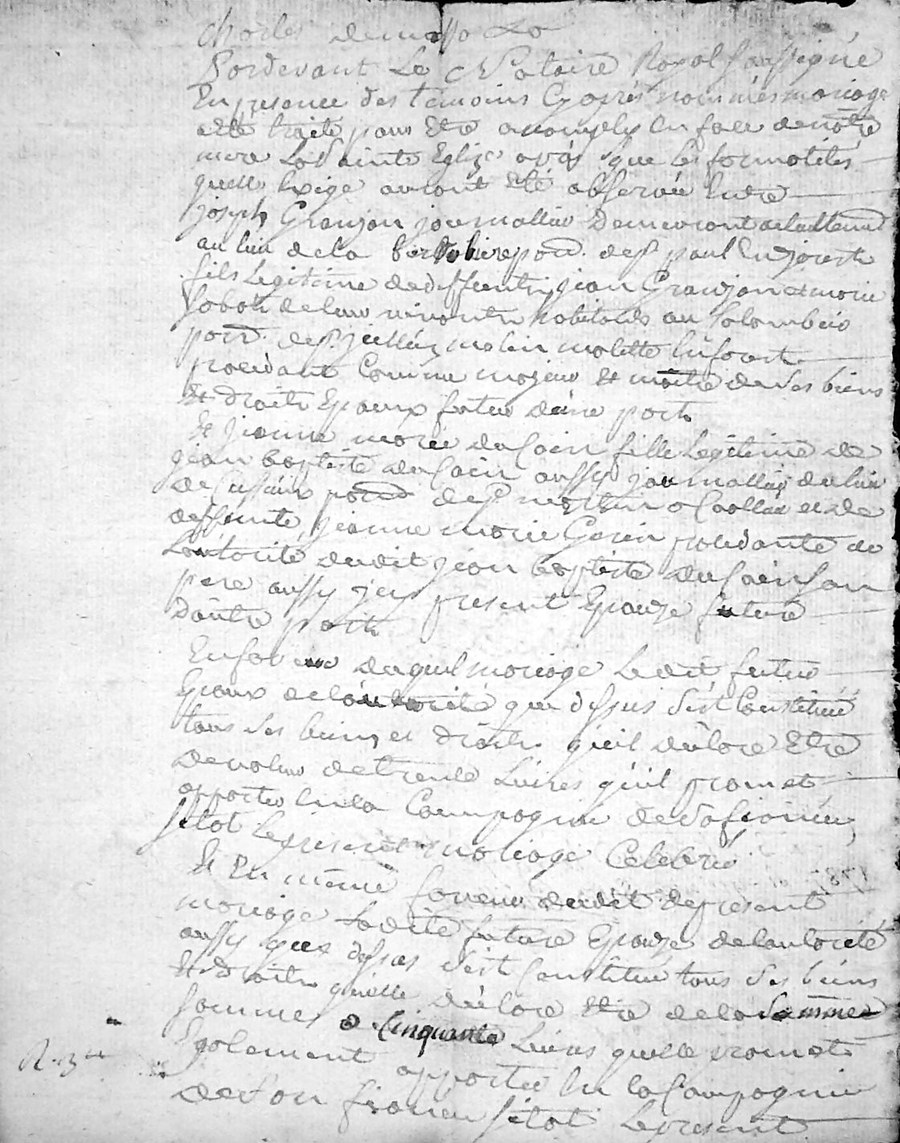 Charles
Pardevant Le Notaire Royal soussigné
En presence des temoins Cyaprés nommés mariage
a eté traité pour Etre accomply En face de nôtre
mere La Sainte Eglize aprés que les formalités
quelle Exige auront Eté observée Entre
joseph Granjon journallier Demeurant
au lieu de la parr. de St paul En jarest
fils Legitime de deffunt jean Granjon et marie
de leur vivant habitants au Colombier
parr. de St julien molin molette En forest
procedant Comme majeur Et maitre de Ses biens
Et droits Epoux futur d'une part
Et jeanne marie duCoin fille Legitime de
jean baptiste duCoin aussy journallier du lieu
de parr. de St martin et de
deffunte jeanne marie Garin procedante de
L'autorité dudit jean baptiste duCoin Son
pere aussy jcy present Epouze future
D'autre part
En faveur duquel mariage Le dit futur
Epoux de l'autorité que dessus S'est Constitué
tous Ses biens et droits quil déclare Etre
De valeur de trente Livres qu'il promet
apporter En la Compagnie de Sa fiancée
sitot Le present mariage Celebré
Et En même faveur dudit present
mariage Ladite future Epouze de l'autorité
aussy que dessus S'est Constitué tous Ses biens
Et droits quelle déclare Etre de la
somme de Cinquante Livres quelle promet
Egalement apporter En la Compagnie
de Son fiancé sitot Le present